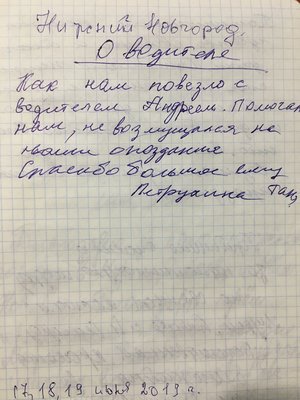 Нижний Новгород.
О водителе
Как нам повезло с
водителем Андреем. Помогал
нам, не возмущался на
наши опоздание
Спасибо большое ему
Петрухина Таня
17, 18, 19 июля 2019 г.